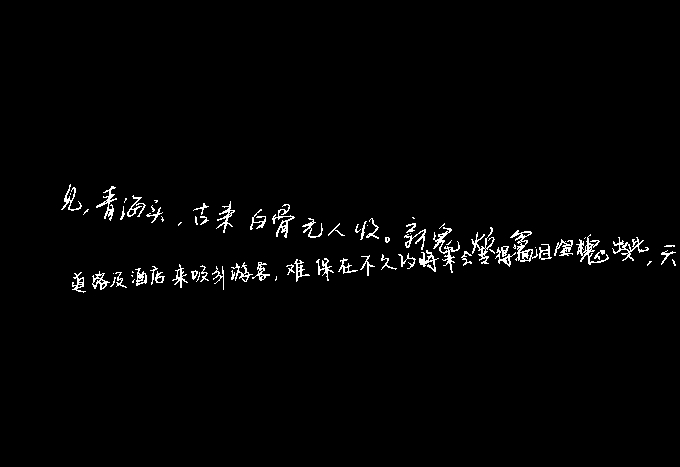 见,青海头,古来白骨无人收。新鬼烦冤
道路及酒店来吸引游客,难保在不久的将来会变得面目全